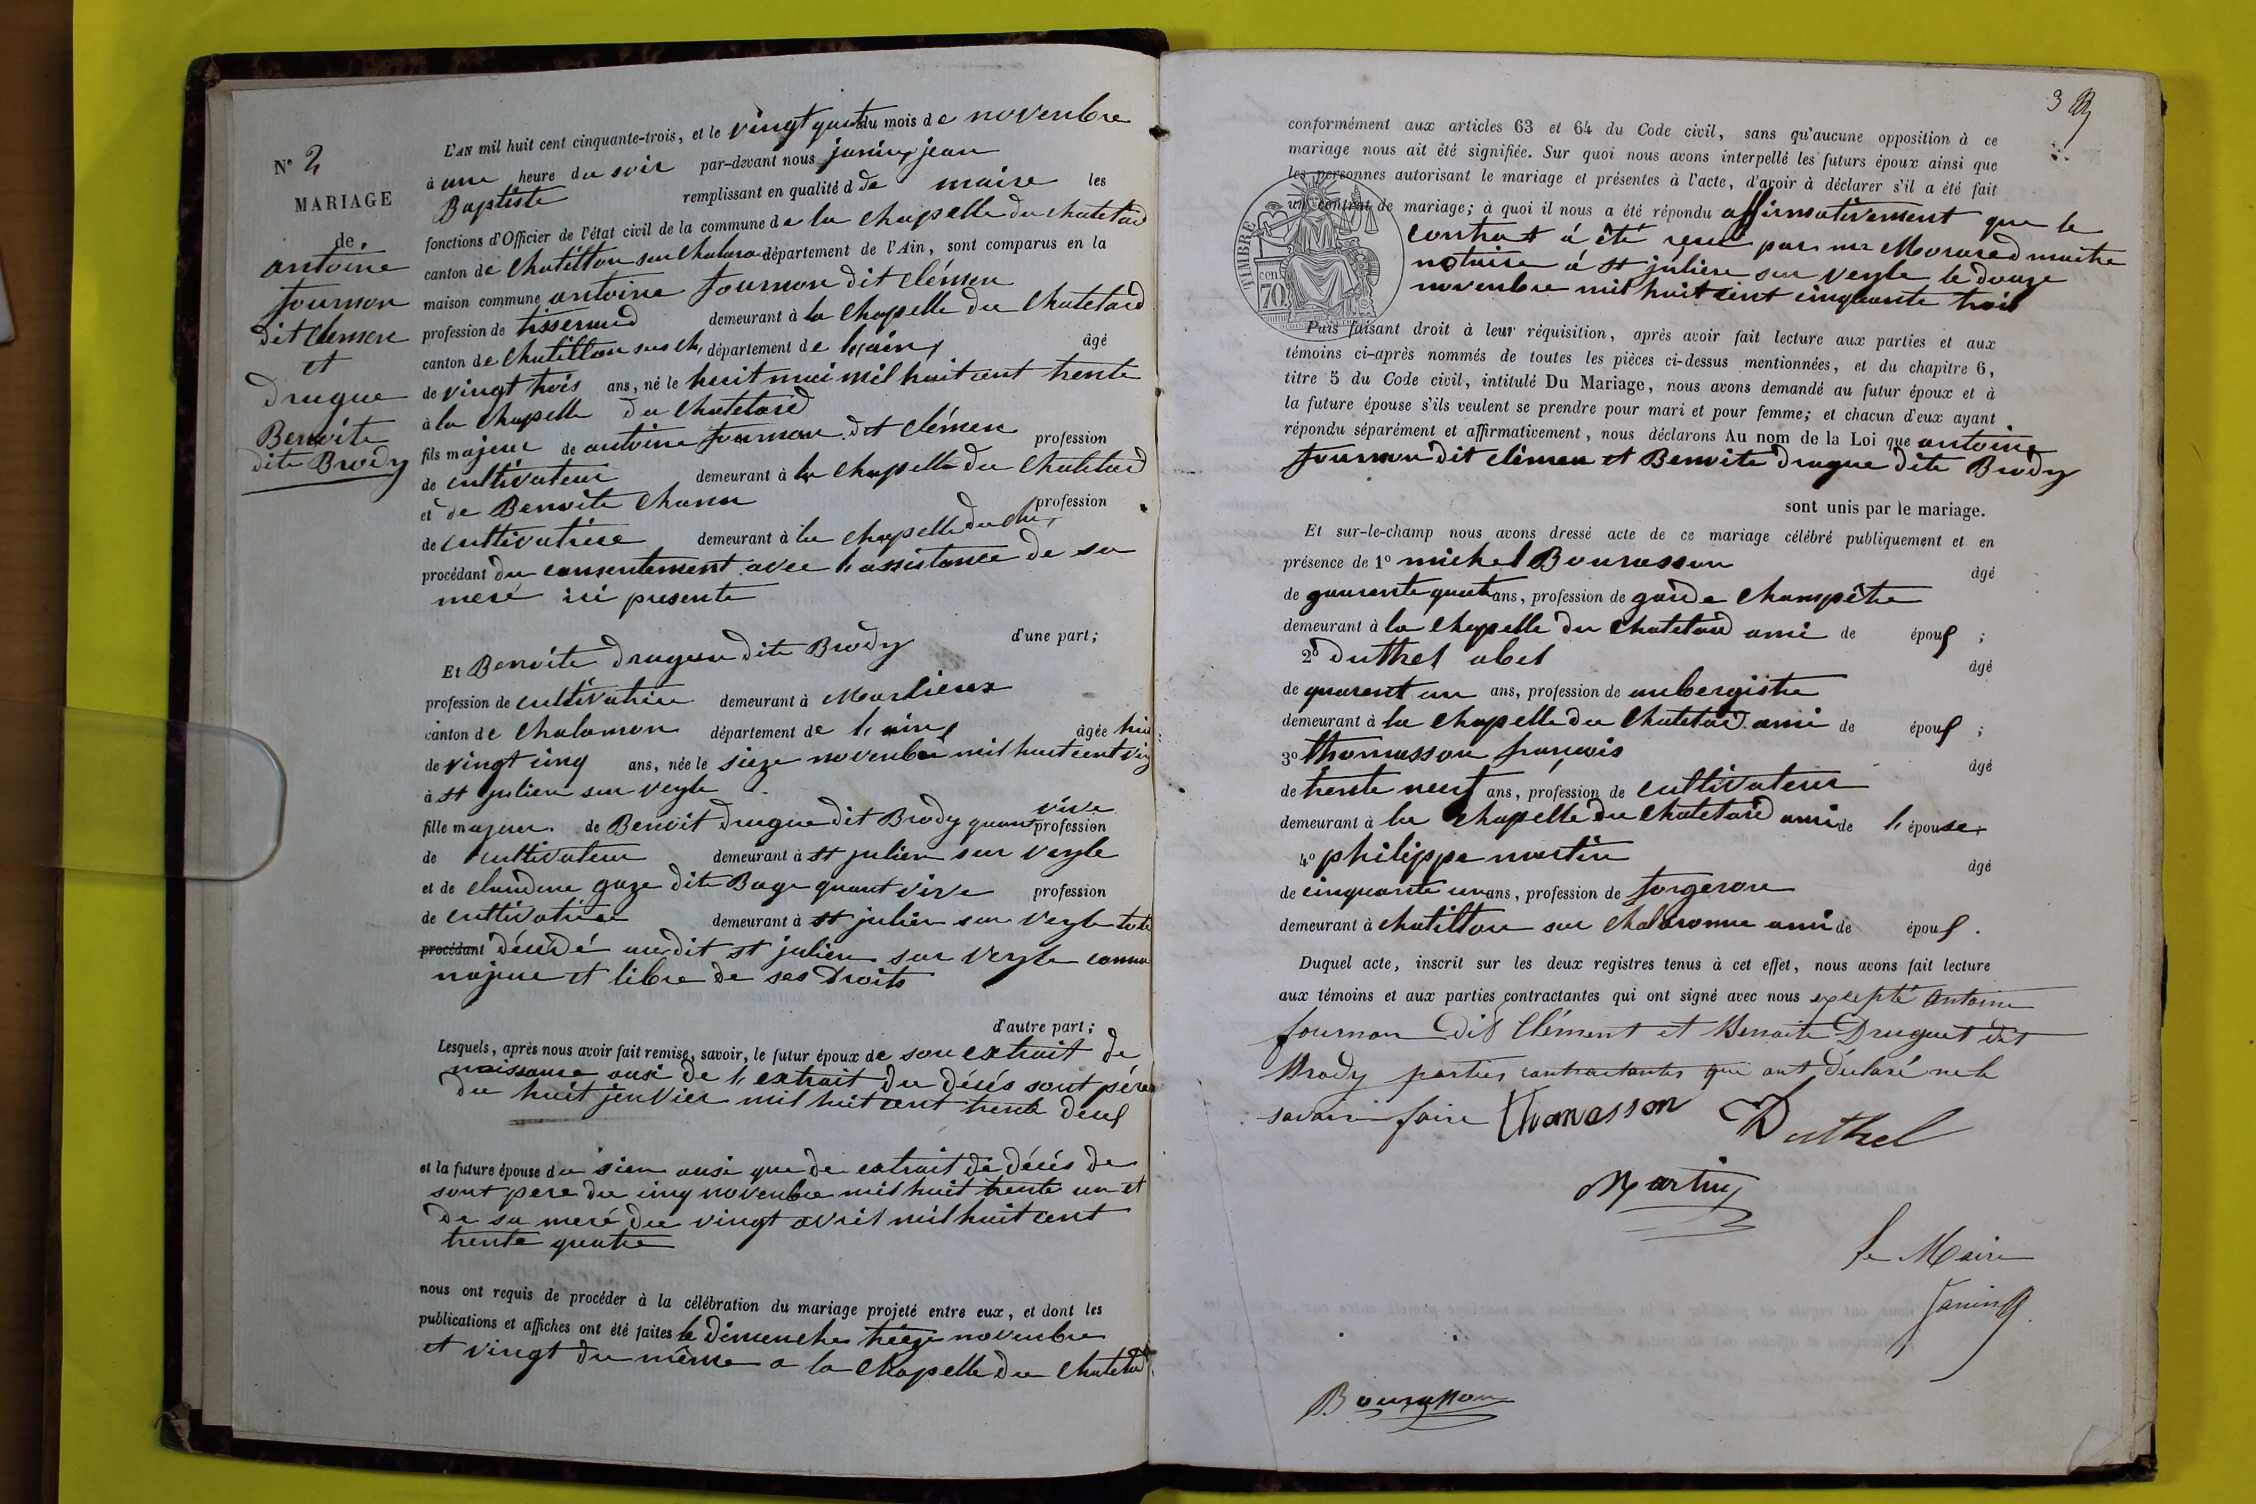 N° 2
MARIAGE
de
antoine
fournon
dit clemen
et
drugue
Benoite
dite Brody
L'AN mil huit cent cinquante-trois, et le vingt quat du mois de novembre
à une heure du soir par-devant nous janin jean
Baptiste remplissant en qualité d de maire les
fonctions d'Officier de l'état civil de la commune de la chapelle du chatelard
canton de chatillon sur chalaron département de l'Ain, sont comparus en la
maison commune antoine fournon dit clémen
profession de tisserand demeurant à la chapelle du chatelard
canton de chatillon sur ch, département de l'ain, âgé
de vingt trois ans, né le huit mai mil huit cent trente
à la chapelle du chatelard
fils majeur de antoine fournon dit clémen profession
de cultivateur demeurant à la chapelle du chatelard
et de Benoite profession
de cultivatrice demeurant à la chapelle du ch,
procédant du consentement avec l'assistance de sa
meré ici presente
d'une part;
Et Benoite drugue dite Brody
profession de cultivatrice demeurant à Marlieux
canton de chalamon département de l'ain, âgée
de vingt cinq ans, née le sieze novembre mil huit cent ving
à st julien sur veyle
fille majeur de Benoit drugue dit Brody quant vive profession
de cultivateur demeurant à st julien sur veyle
et de claudine gaze dite Bage quant vive profession
de cultivatrice demeurant à st julien sur veyle
procédant décédé audit st julien sur veyle comme
majeure et libre de ses droits
d'autre part;
Lesquels, après nous avoir fait remise, savoir, le futur époux de son extrait de
naissance ausi de l'extrait du décés sont pére
du huit jenvier mil huit cent trente deux
et la future épouse du sien ausi que de extrait de décés de
sont pere du cinq novembre mil huit trente un et
de sa meré du vingt avril mil huit cent
trente quatre
nous ont requis de procéder à la célébration du mariage projeté entre eux, et dont les
publications et affiches ont été faites le dimenche treize novembre
et vingt du même a la chapelle du chatelard
3
conformément aux articles 63 et 64 du Code civil, sans qu'aucune opposition à ce
mariage nous ait été signifiée. Sur quoi nous avons interpellé les futurs époux ainsi que
les personnes autorisant le mariage et présentes à l'acte, d'avoir à déclarer s'il a été fait
un contrat de mariage; à quoi il nous a été répondu affirmativement que le
contrat á été reçu par me Morared maitre
notaire á st julien sur veyle le douze
novembre mil huit cent cinquante trois
TIMBRE
cen
70
Puis faisant droit à leur réquisition, après avoir fait lecture aux parties et aux
témoins ci-après nommés de toutes les pièces ci-dessus mentionnées, et du chapitre 6,
titre 5 du Code civil, intitulé Du Mariage, nous avons demandé au futur époux et à
la future épouse s'ils veulent se prendre pour mari et pour femme; et chacun d'eux ayant
répondu séparément et affirmativement, nous déclarons Au nom de la Loi que antoine
fournon dit clémen et Benoite drugue dite Brody
sont unis par le mariage.
Et sur-le-champ nous avons dressé acte de ce mariage célébré publiquement et en
présence de 1° michel Bourasson âgé
de quarente quat ans, profession de garde champêtre
demeurant à la chapelle du chatelard ami de époux ;
2° duthel abel âgé
de quarent un ans, profession de aubergiste
demeurant à la chapelle du chatelard ami de époux ;
3° thomasson françois âgé
de trente neuf ans, profession de cultivateur
demeurant à la chapelle du chatelard ami de l'épouse
4° philippe martin âgé
de cinquante un ans, profession de forgeron
demeurant à chatillon sur chalaronne ami de époux .
Duquel acte, inscrit sur les deux registres tenus à cet effet, nous avons fait lecture
aux témoins et aux parties contractantes qui ont signé avec nous excepté Antoine
fournon dit Clément et Benoite Druguet dit
Brody parties contractantes qui ont déclaré ne le
savoir faire Thomasson Duthel
Martin
le Maire
Janin
Bourasson